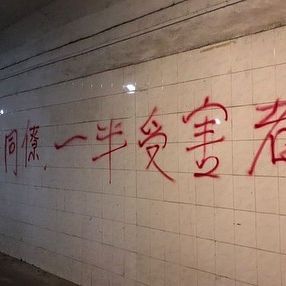 同僚一半受害者